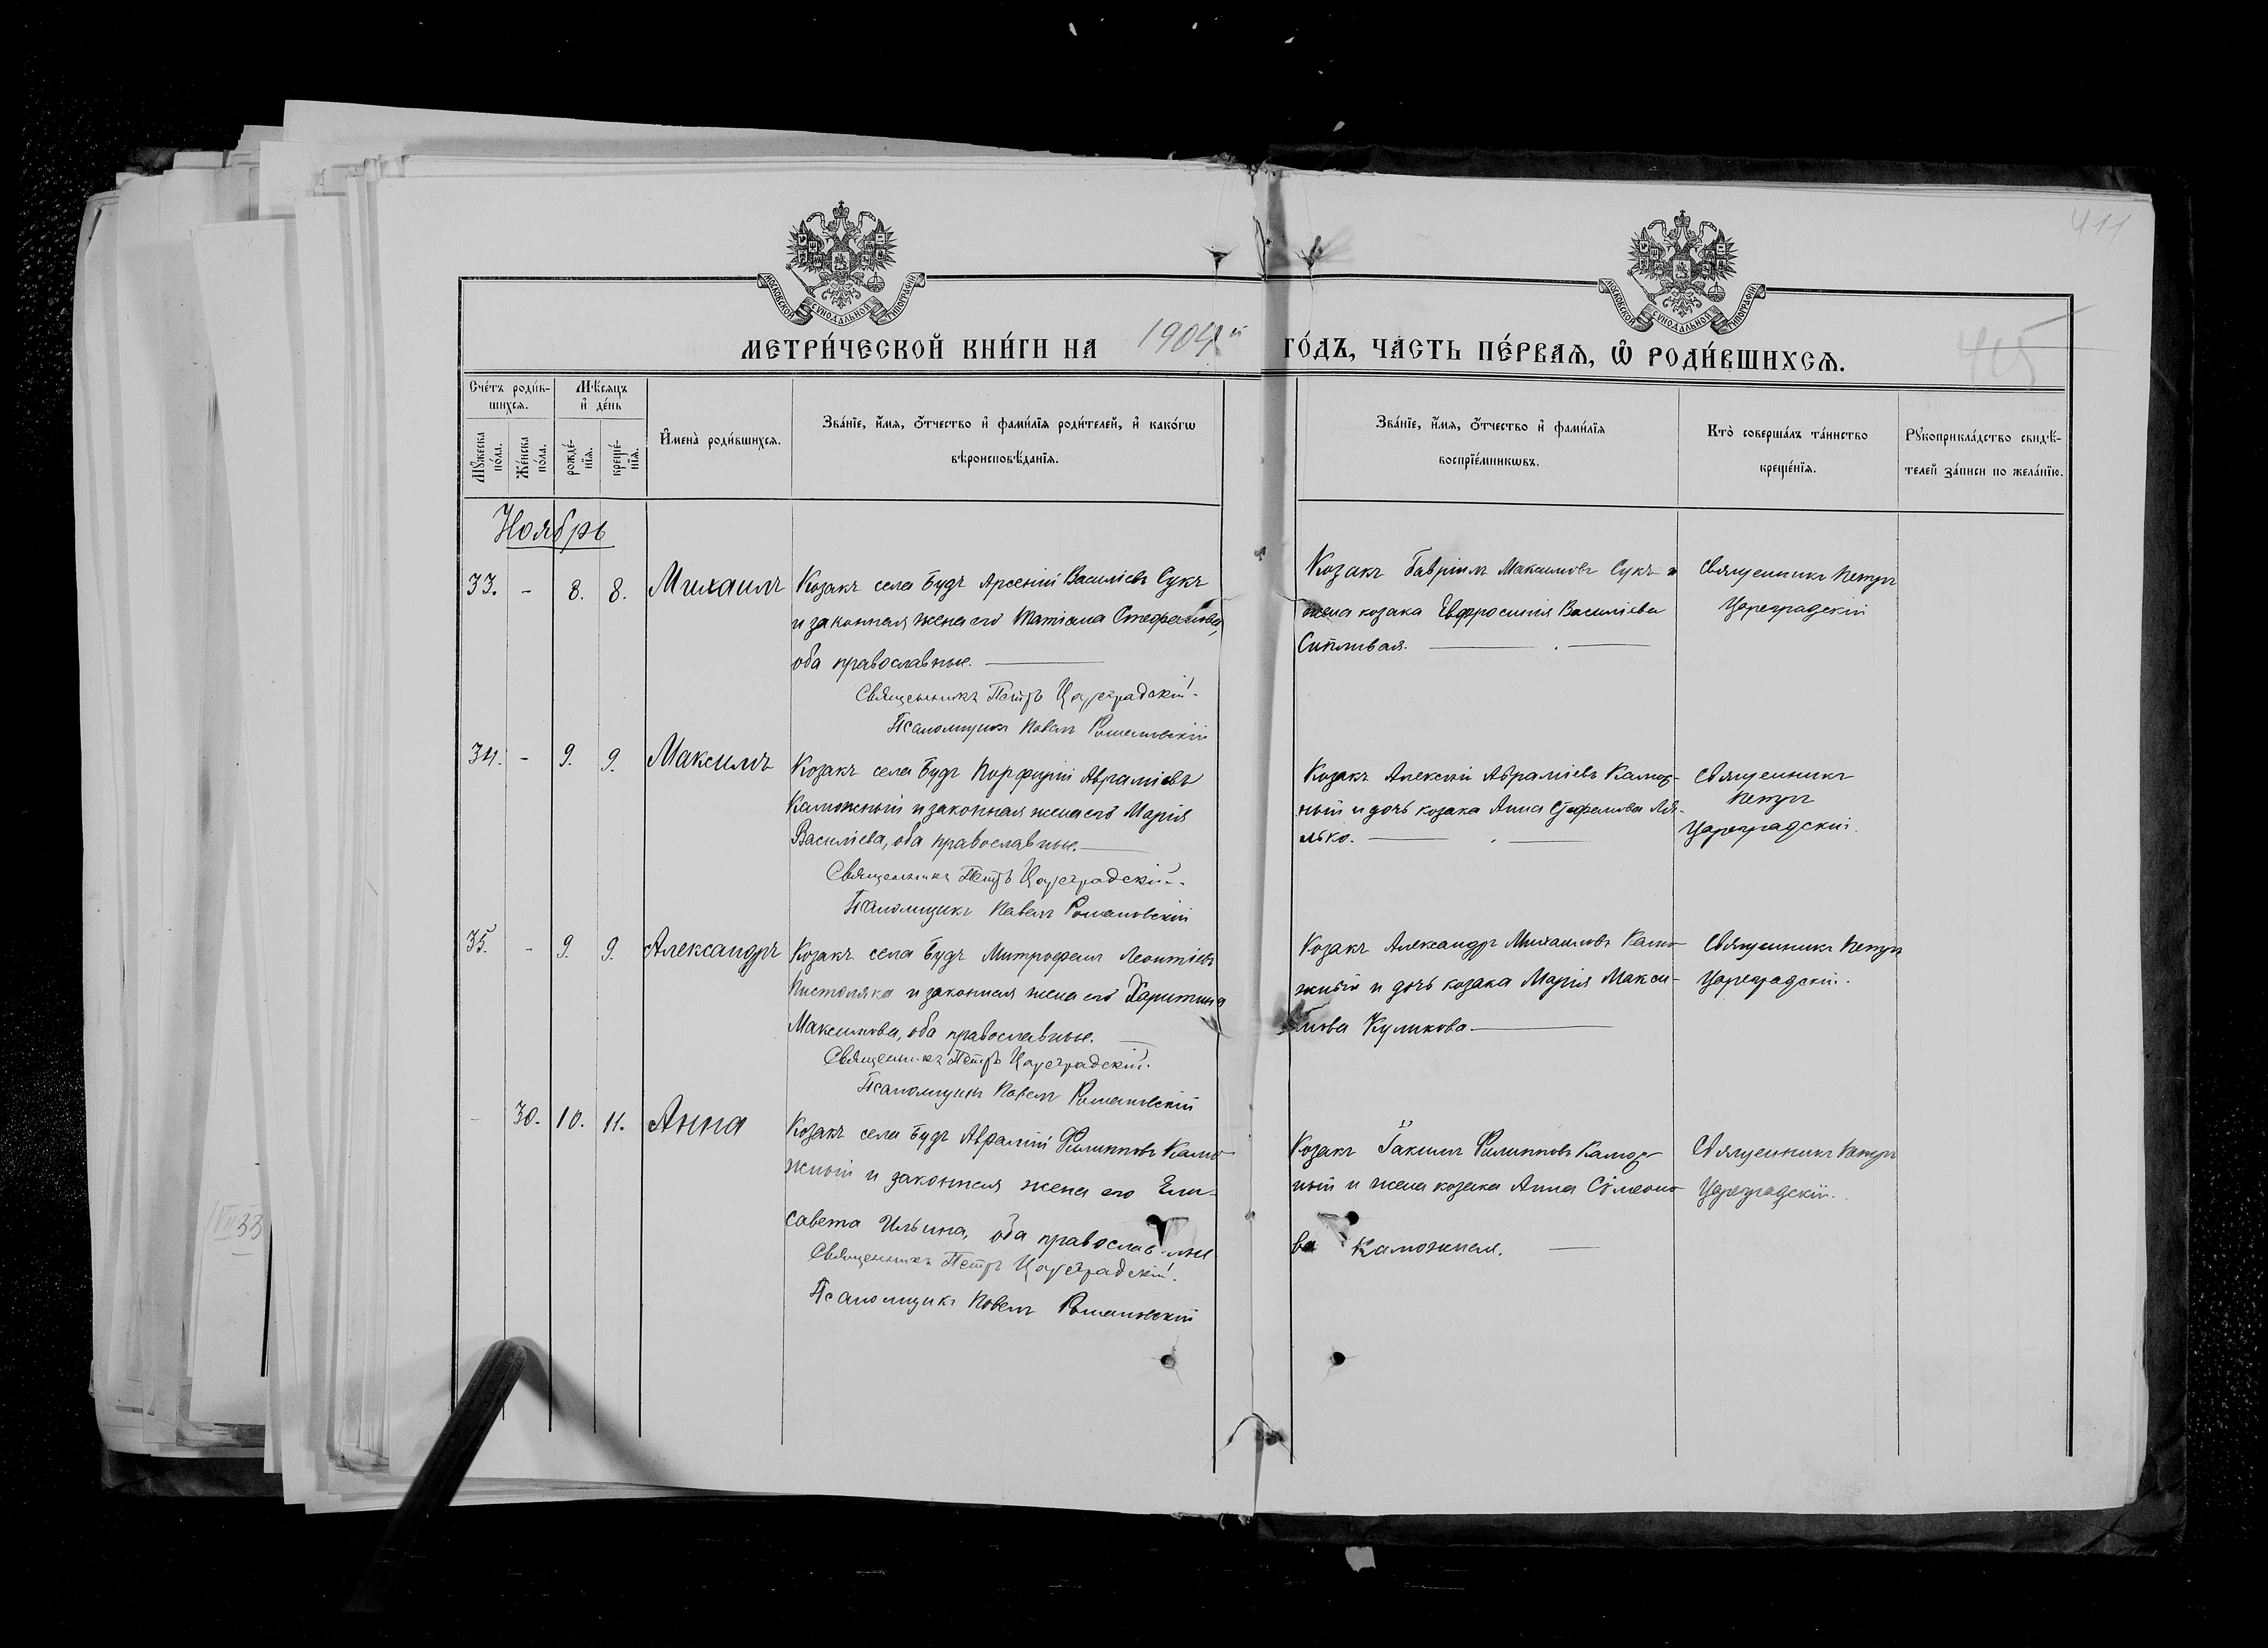 411
МОСКОВСКОЙ СУНОДАЛЬНОЙ ТИПОГРАФІИ
МОСКОВСКОЙ СУНОДАЛЬНОЙ ТИПОГРАФІИ
МЕТРИ́ЧЕСКОЙ КНИ́ГИ НА 1904й ГО́ДЪ, ЧА́СТЬ ПЕ́РВАѦ, Ѽ РОДИ́ВШИХСѦ.
415
Сче́тъ роди́в-
шихсѧ.
Мѣ́сѧцъ
и҆ де́нь
Мꙋ́жеска
по́ла.
Же́нска
по́ла.
рожде́-
нїѧ.
креще́-
нїѧ.
И҆мена̀ роди́вшихсѧ.
Зва́нїе, и҆́мѧ, ѻ҆́тчество и҆ фами́лїѧ роди́телей, и҆ како́гѡ
вѣроисповѣ́данїѧ.
Зва́нїе, и҆́мѧ, ѻ҆́тчество и҆ фами́лїѧ
воспрїе́мникѡвъ.
Кто̀ соверша́лъ та́инство
креще́нїѧ.
Рꙋкоприкла́дство свидѣ́-
телей за́писи по жела́нїю.
Ноябрь
33. - 8. 8. Михаилъ
Козакъ села Будъ Арсеній Василіевъ Сукъ
и законная жена его Татіана Стефанова,
оба православные.
Священникъ Петръ Цареградскій.
Псаломщикъ Павелъ Романовскій
Козакъ Гавріилъ Максимовъ Сукъ и
жена козака Евфросинія Василіева
Сипливая.
Священникъ Петръ
Цареградскій
34. - 9. 9. Максимъ
Козакъ села Будъ Порфирій Авраміевъ
Каможный и законная жена его Марія
Василіева, оба православные.
Священникъ Петръ Цареградскій.
Псаломщикъ Павелъ Романовскій
Козакъ Алексій Авраміевъ Камож-
ный и дочь козака Анна Стефанова Ля-
лько.
Священникъ
Петръ
Цареградскій.
35. - 9. 9. Александръ
Козакъ села Будъ Митрофанъ Леонтіевъ
Пистоляка и законная жена его Харитина
Максимова, оба православные.
Священникъ Петръ Цареградскій.
Псаломщикъ Павелъ Романовскій
Козакъ Александръ Михаиловъ Камо-
жный и дочь козака Марія Макси-
мова Куликова.
Священникъ Петръ
Цареградскій.
- 30. 10. 11. Анна
Козакъ села Будъ Аврамій Филипповъ Камо-
жный и законная жена его Ели-
савета Ильина, оба православные
Священникъ Петръ Цареградскій.
Псаломщикъ Павелъ Романовскій
Козакъ Іакимъ Филипповъ Камож-
ный и жена козака Анна Сѵмеоно-
ва Каможная.
Священникъ Петръ
Цареградскій.